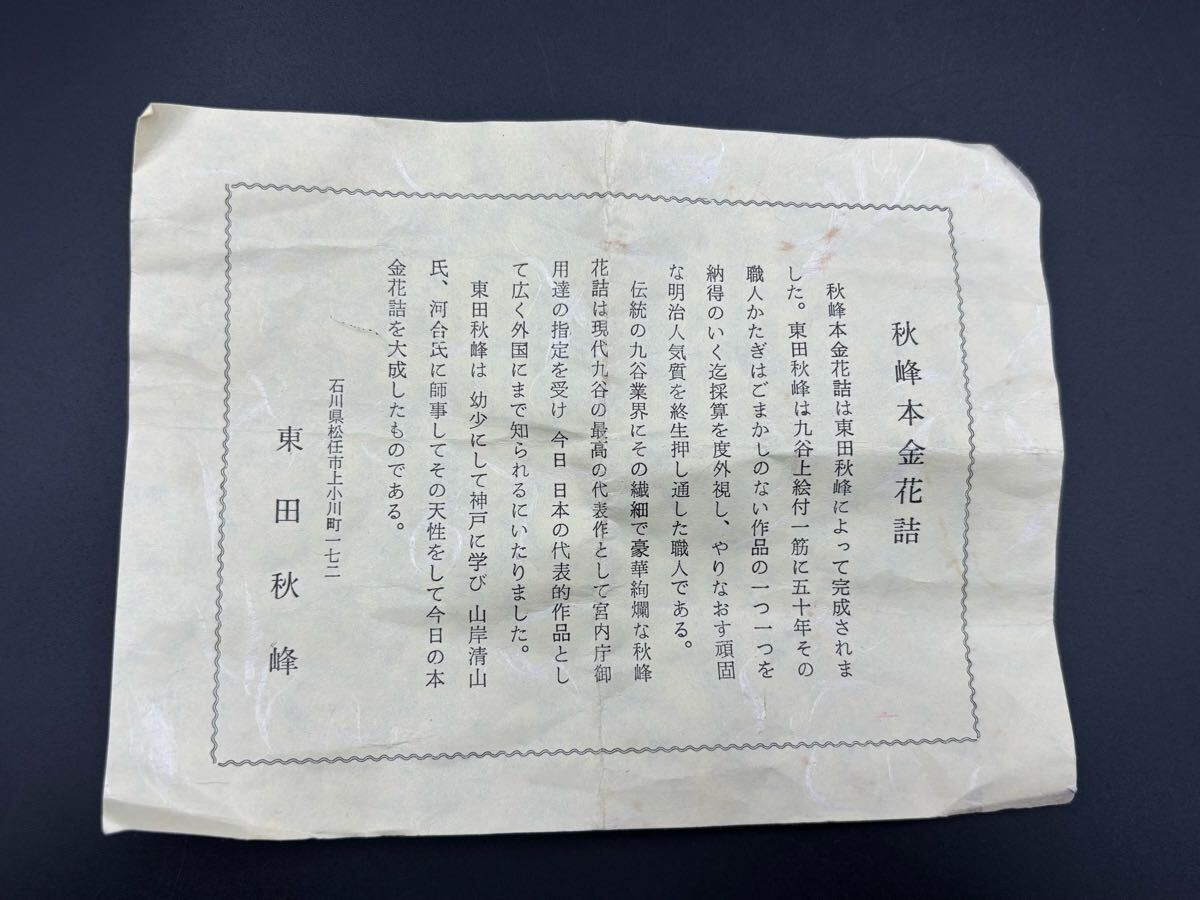 秋峰本金花詰
秋峰本金花詰は東田秋峰によって完成されま
した。東田秋峰は九谷上絵付一筋に五十年その
職人かたぎはごまかしのない作品の一つ一つを
納得のいく迄採算を度外視し、やりなおす頑固
な明治人気質を終生押し通した職人である。
伝統の九谷業界にその繊細で豪華絢爛な秋峰
花詰は現代九谷の最高の代表作として宮内庁御
用達の指定を受け 今日 日本の代表的作品とし
て広く外国にまで知られるにいたりました。
東田秋峰は 幼少にして神戸に学び 山岸清山
氏、河合氏に師事してその天性をして今日の本
金花詰を大成したものである。
石川県松任市上小川町一七二
東田秋峰